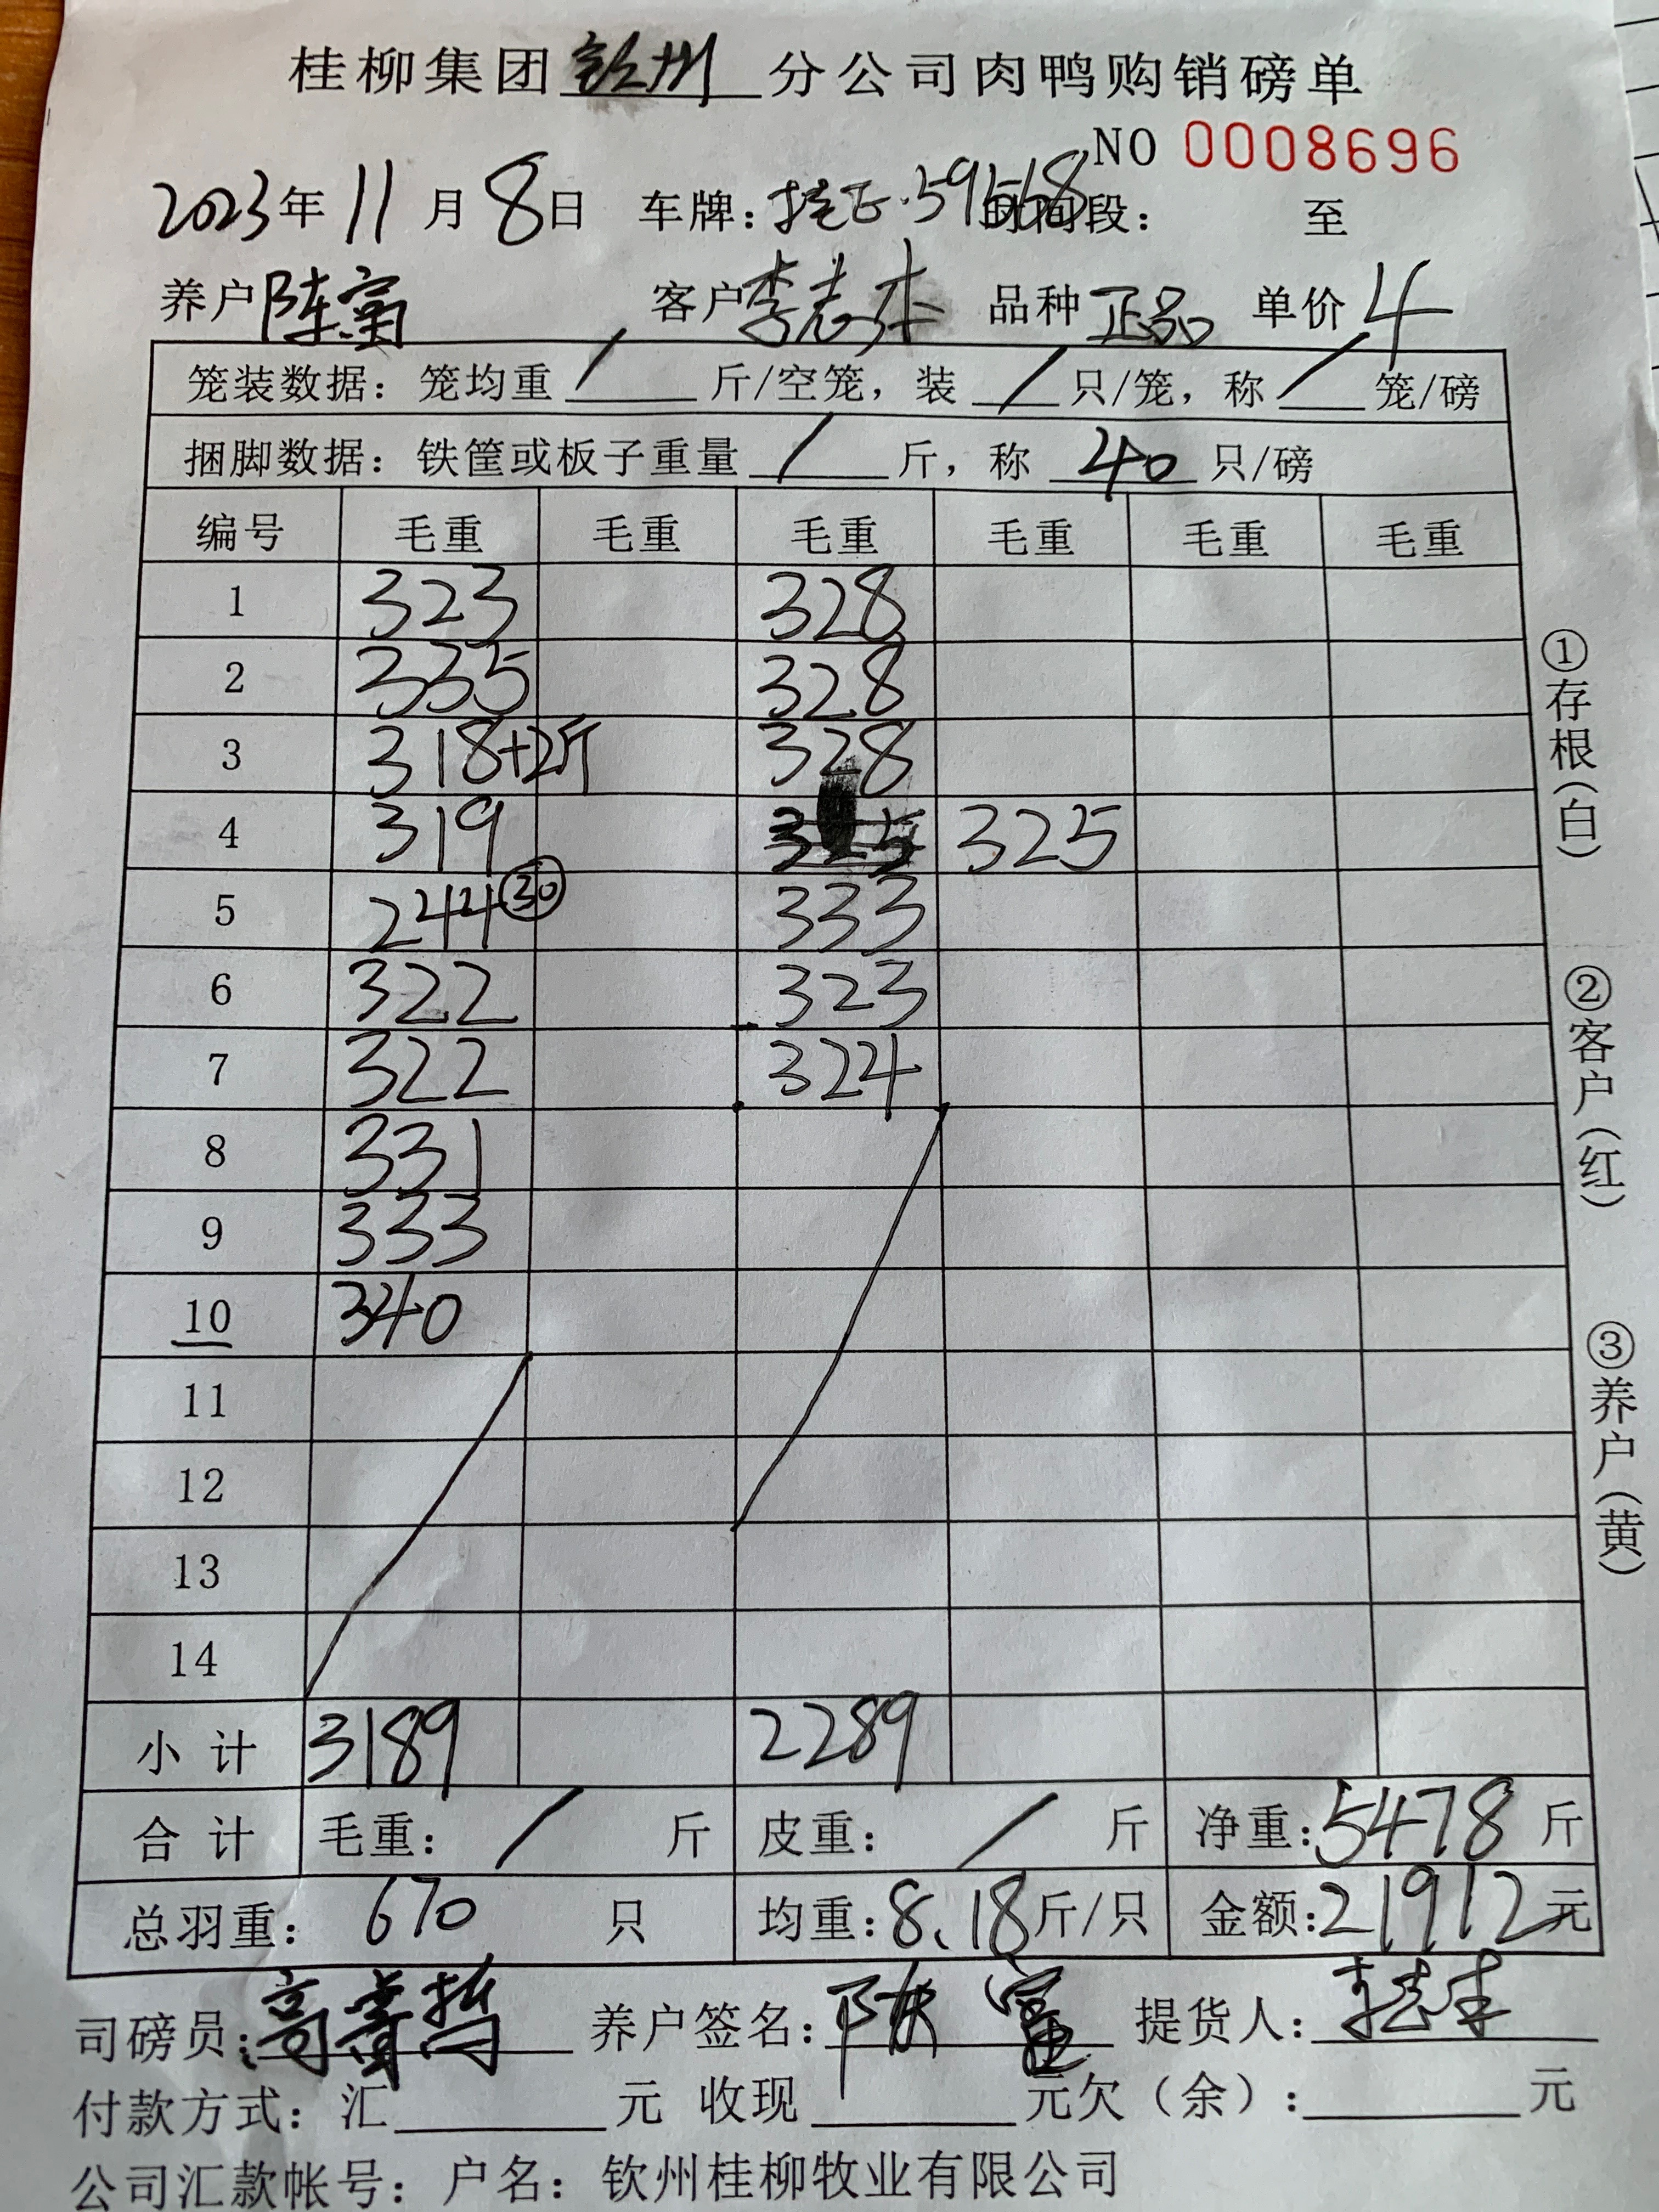 桂柳集团钦州分公司肉鸭购销磅单
NO 0008696
2023年11月8日 车牌：桂E·59568时间段： 至
养户陈富 客户李志本 品种正品 单价4
笼装数据：笼均重/斤/空笼，装/只/笼，称/笼/磅
捆脚数据：铁筐或板子重量/斤，称40只/磅
编号 毛重 毛重 毛重 毛重 毛重 毛重
1 323 328
2 335 328
3 318+2斤 328
4 319 325 325
5 244㉚ 333
6 322 323
7 322 324
8 331
9 333
10 340
11
12
13
14
小计 3189 2289
合计 毛重：/斤 皮重：/斤 净重：5478斤
总羽重：670只 均重：8.18斤/只 金额：21912元
司磅员： 养户签名：陈富 提货人：李志本
付款方式：汇 元 收现 元欠（余）： 元
公司汇款帐号：户名：钦州桂柳牧业有限公司
①存根（白）
②客户（红）
③养户（黄）